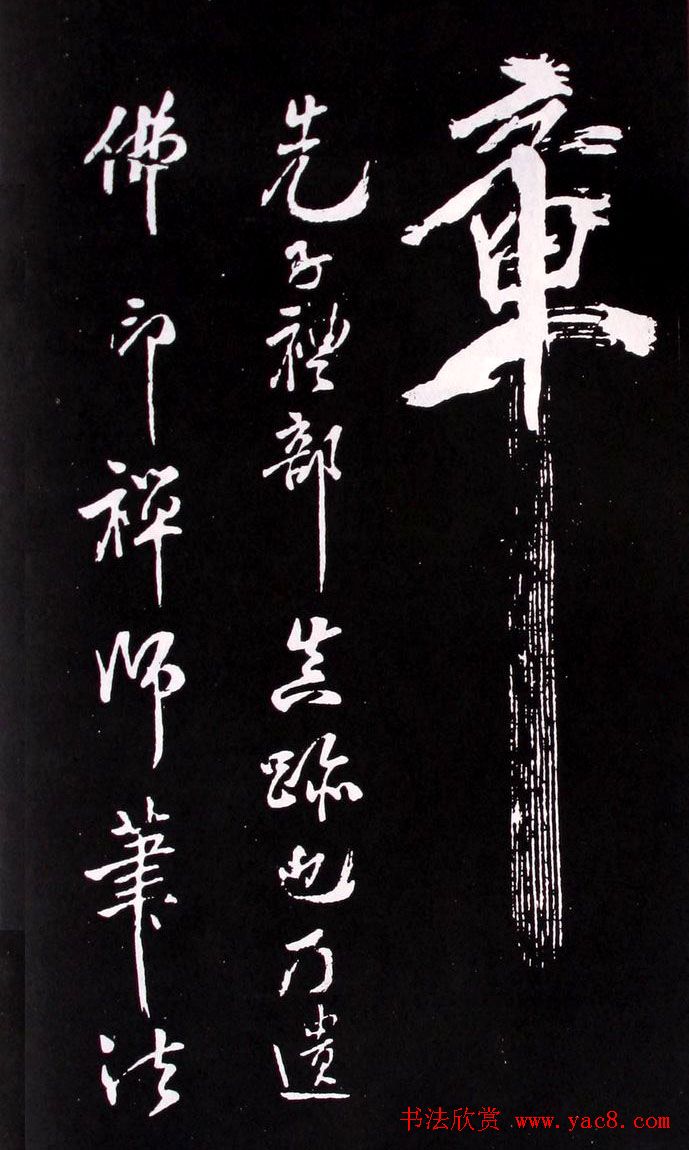 章
先子禮部真跡也乃遺
佛印禪師筆法
书法欣赏 www.yac8.com